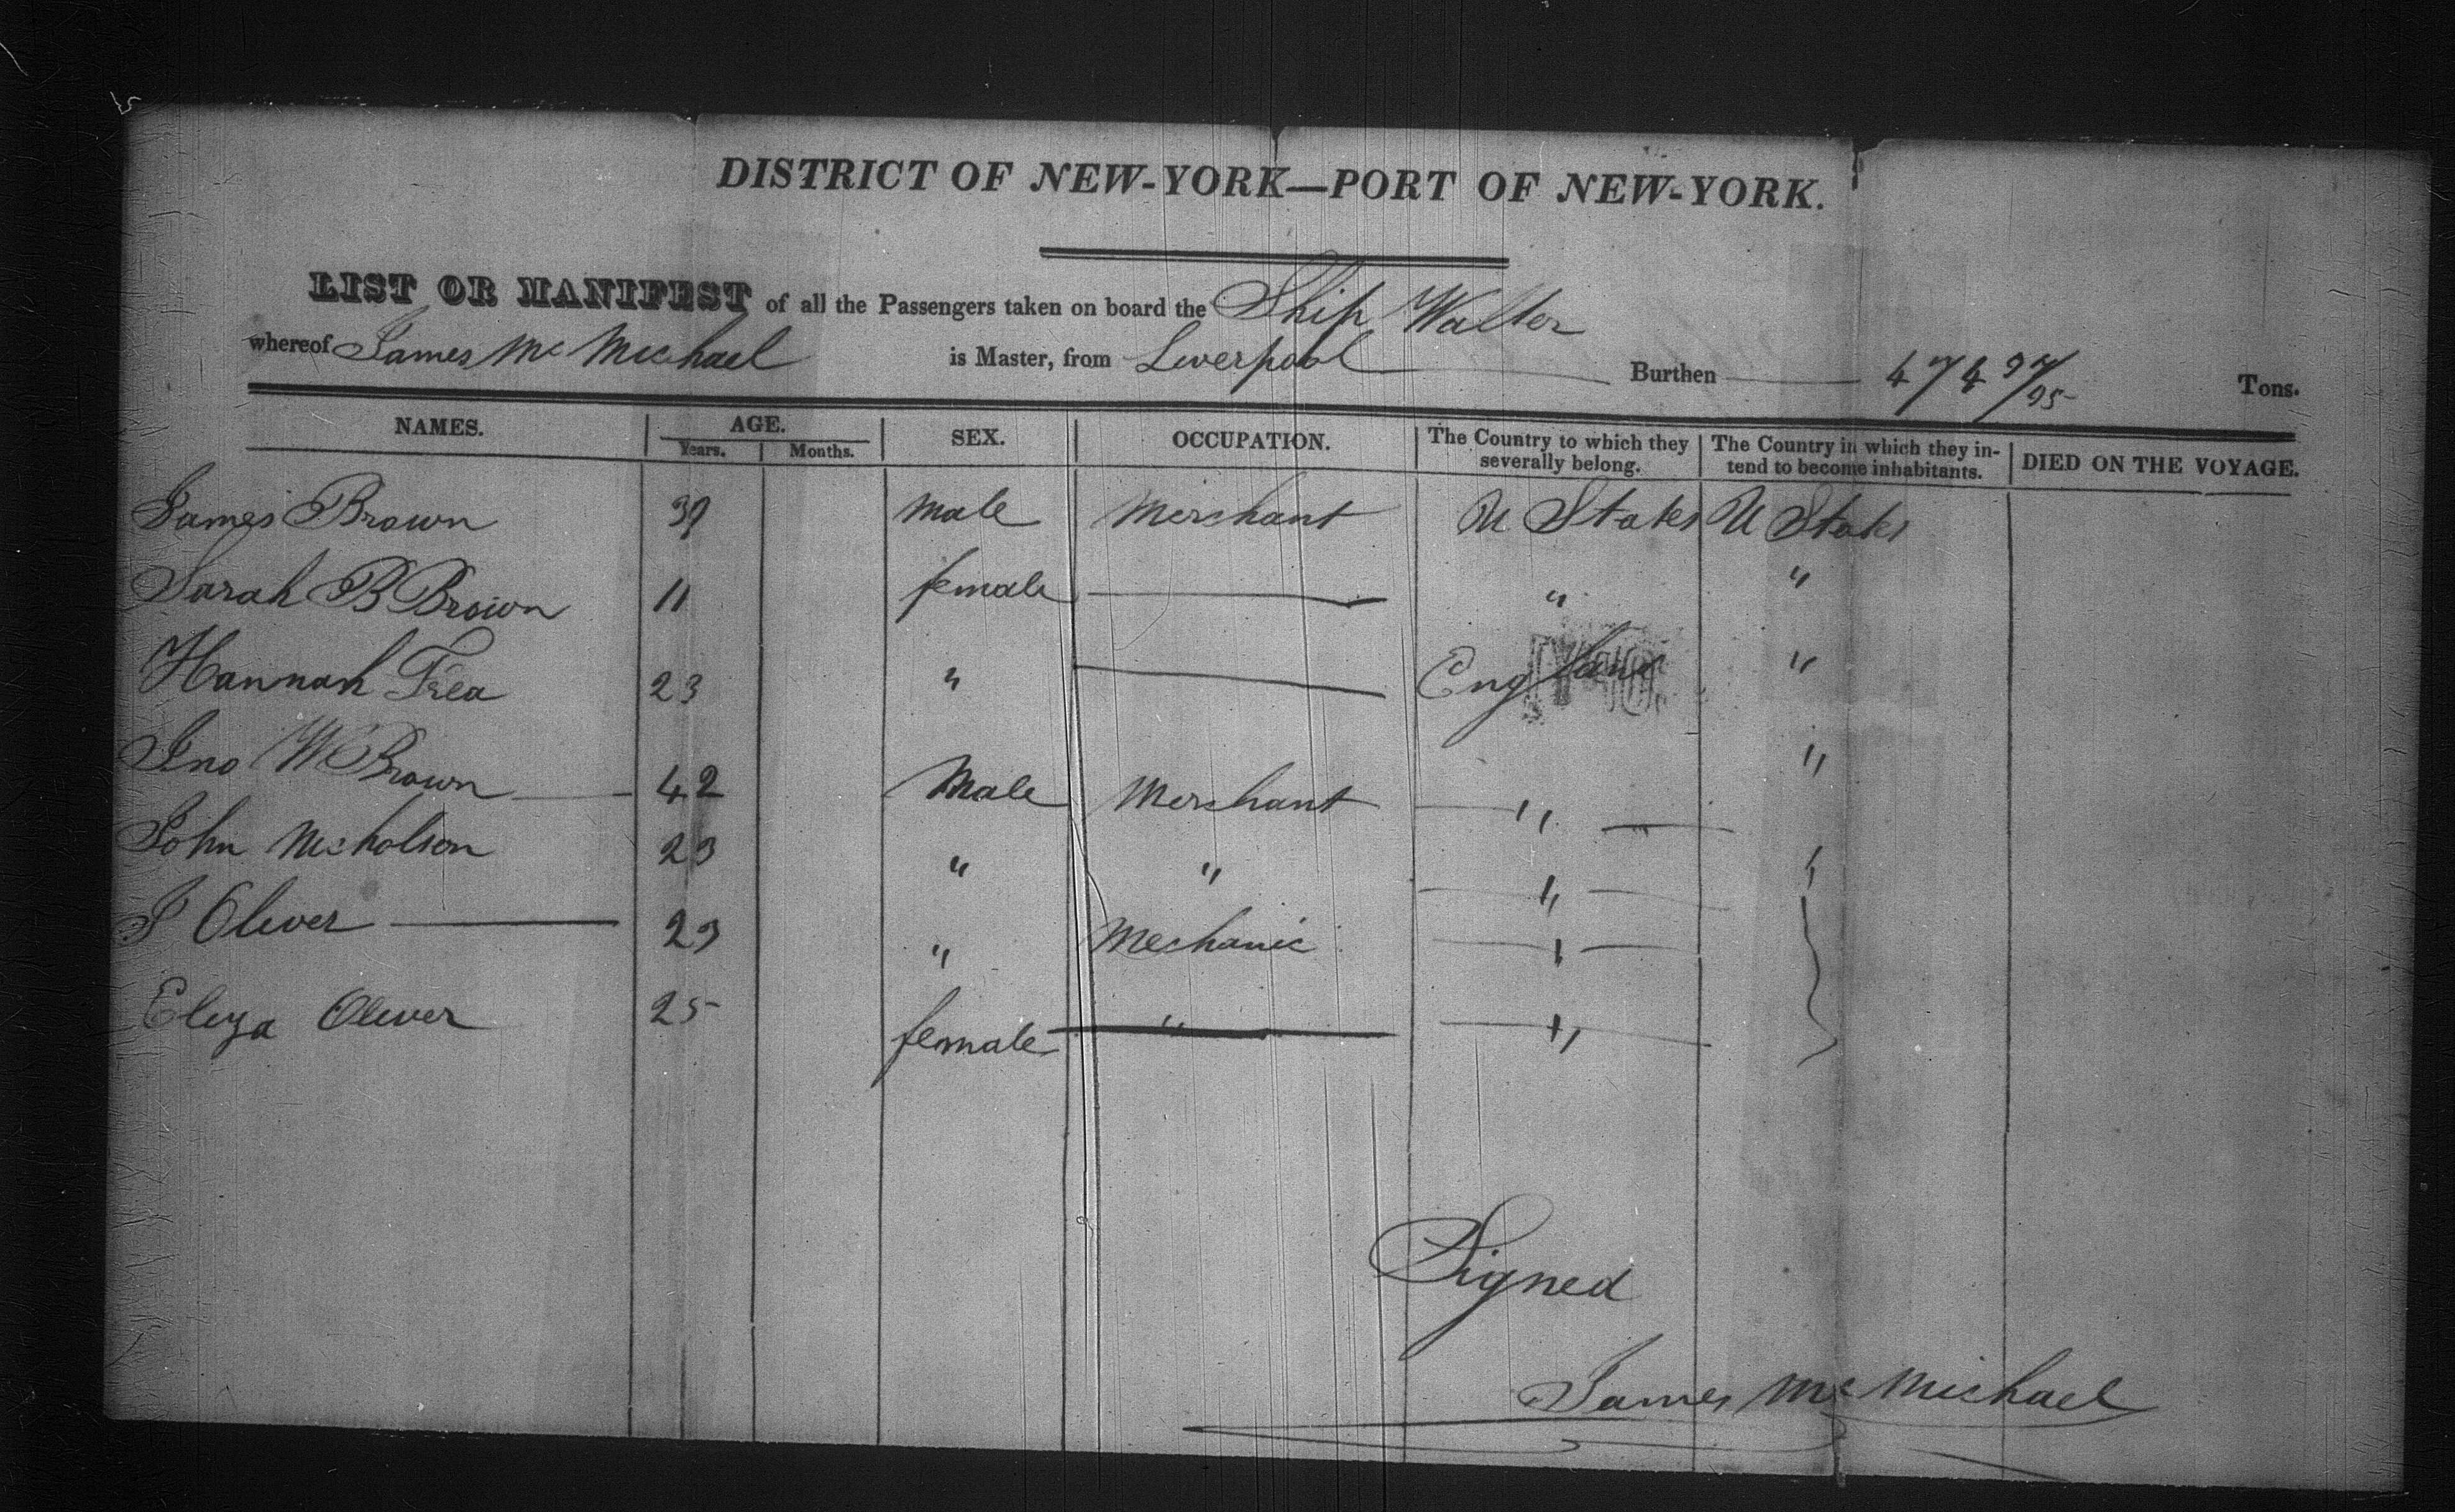 DISTRICT OF NEW-YORK—PORT OF NEW-YORK.
LIST OR MANIFEST of all the Passengers taken on board the Ship Walter
whereof James Mc Michael is Master, from Liverpool Burthen 474 97/95 Tons.
NAMES. AGE. Years. Months. SEX. OCCUPATION. The Country to which they severally belong. The Country in which they intend to become inhabitants. DIED ON THE VOYAGE.
James Brown 39 male Merchant U States U States
Sarah B Brown 11 female " "
Hannah Frea 23 " England "
Jno W Brown 42 Male Merchant " "
John Nicholson 23 " " " "
J Oliver 23 " Mechanic "
Eliza Oliver 25 female " "
Signed
James Mc Michael